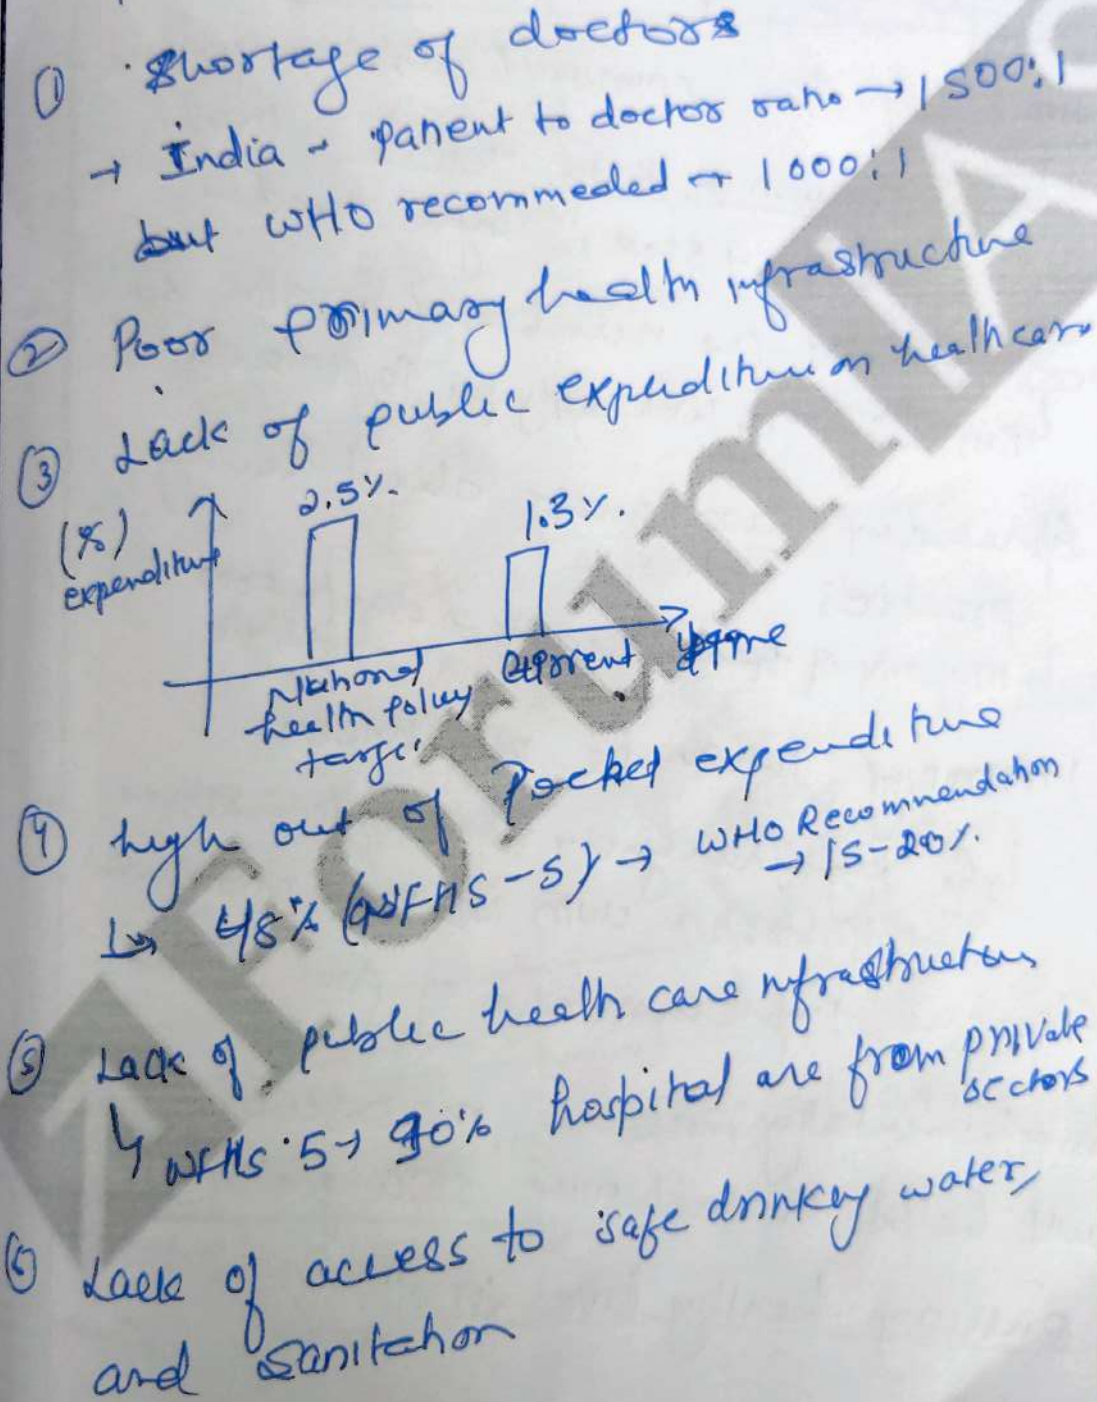 ① Shortage of doctors
→ India - patient to doctor ratio → 1500:1
but WHO recommeded → 1000:1
② Poor primary health infrastructure
③ Lack of public expenditure on healthcare
2.5%.
1.3%.
(%)
expenditure
National
health policy
target
Current
time
④ high out of Pocket expenditure
↳ 48% (NFHS-5) → WHO Recommendation
→ 15-20%.
⑤ Lack of public health care infrastructure
↳ NFHS 5 → 90% hospital are from private
sectors
⑥ Lack of access to safe drinking water,
and Sanitation
ForumIAS